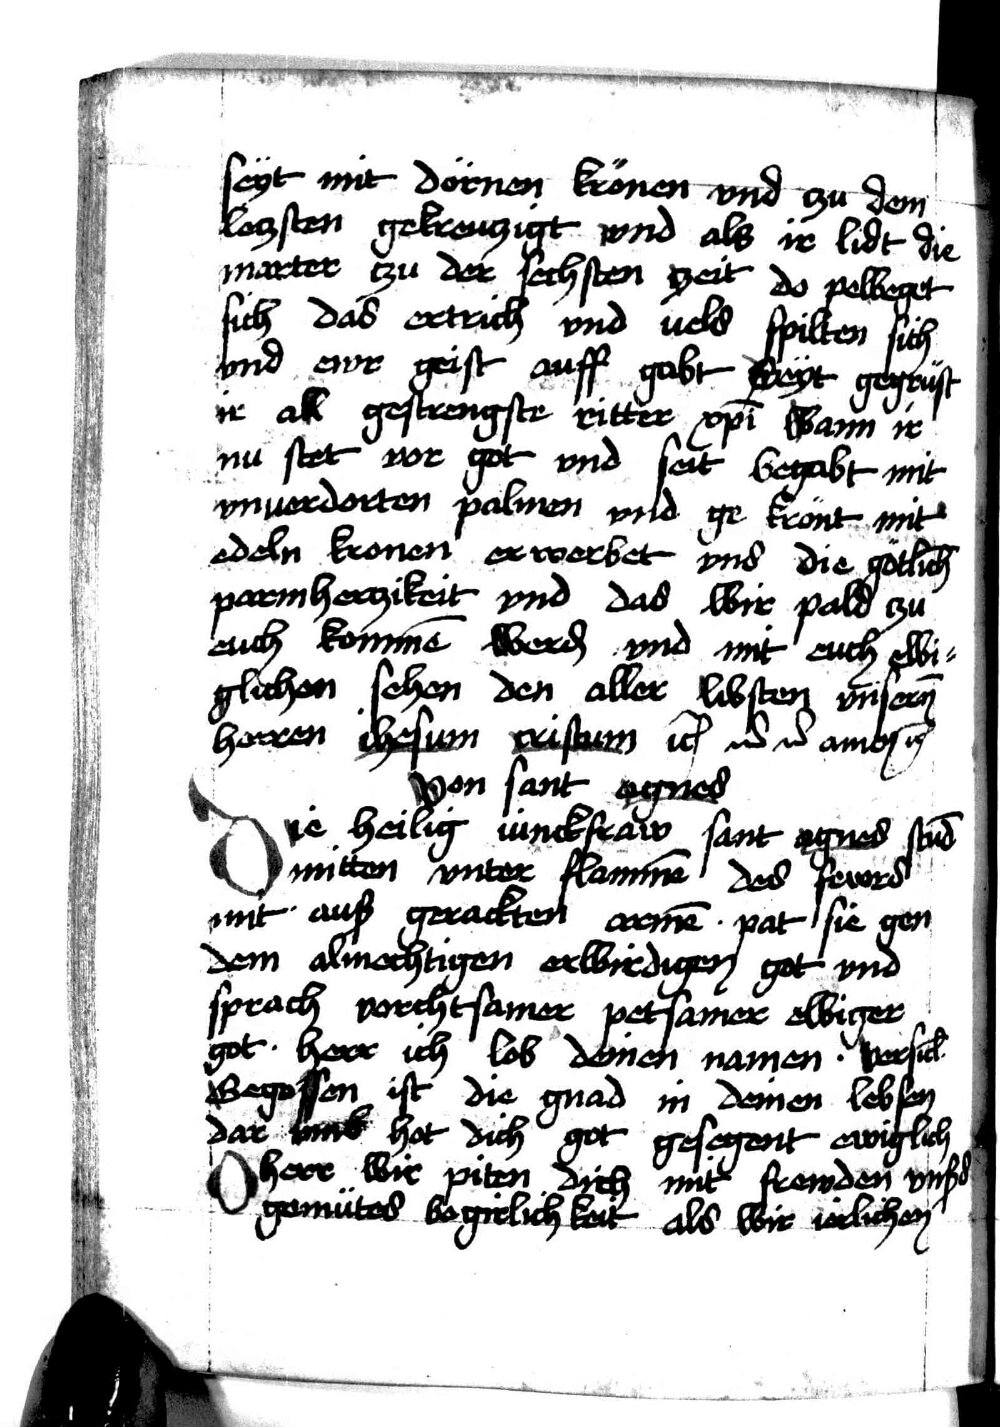 seÿt mit dörnen krönen vnd tzu dem
letzsten gekreutzigt wnd als ir lidt die
marter tzu der sechsten tzeit do pelbeget
sich das ertrich vnd uels spilten sich
vnd ewr geist auff gabt Seÿt gegrüst
ir all gestrengste ritter xp̄i Wann ir
nu stet vor got vnd seit begabt mit
vnuerdorten palmen vnd ge krönt mit
edeln kronen erwerbet vns die götlich
parmhertzikeit vnd das wir pald tzu
euch kommē werdn vnd mit euch elbi-
glichen sehen den aller libsten vnsern̄
herren ihesum cristum amen
von sant agnes
Die heilig iunckfraw sant agnes stūd
mitten vnter flammē des fewrs
mit · auß gerackten armē · pat sie gen
dem almechtigen erwirdigen got vnd
sprach vorchtsamer petsamer elbiger
got · herr ich lob deinen namen · versicl
Begossen ist die gnad in deinen lebsen
dar vmb hot dich got gesegent ewiglich
O herr wir piten dich mit frewden vnsers
gemütes begirlichkeit als wir ierlichen